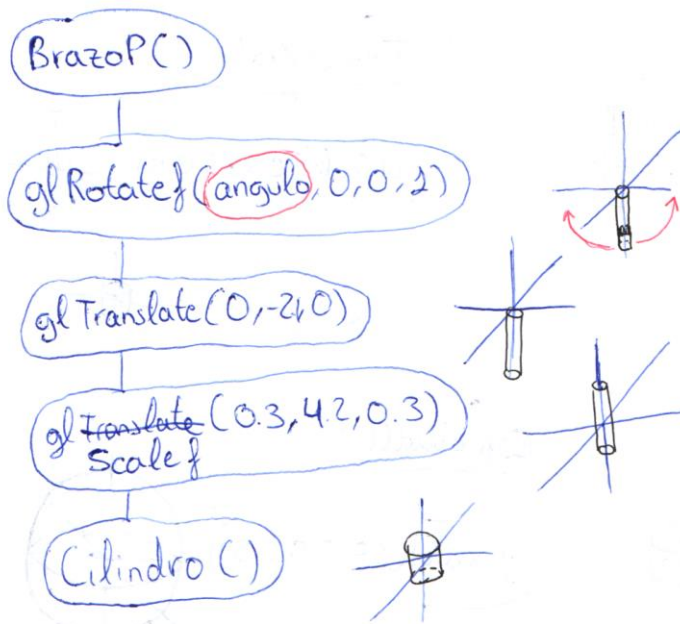 BrazoP()
glRotatef(angulo, 0, 0, 1)
glTranslate(0, -2, 0)
gl Translate (0.3, 4.2, 0.3)
Scalef
Cilindro()